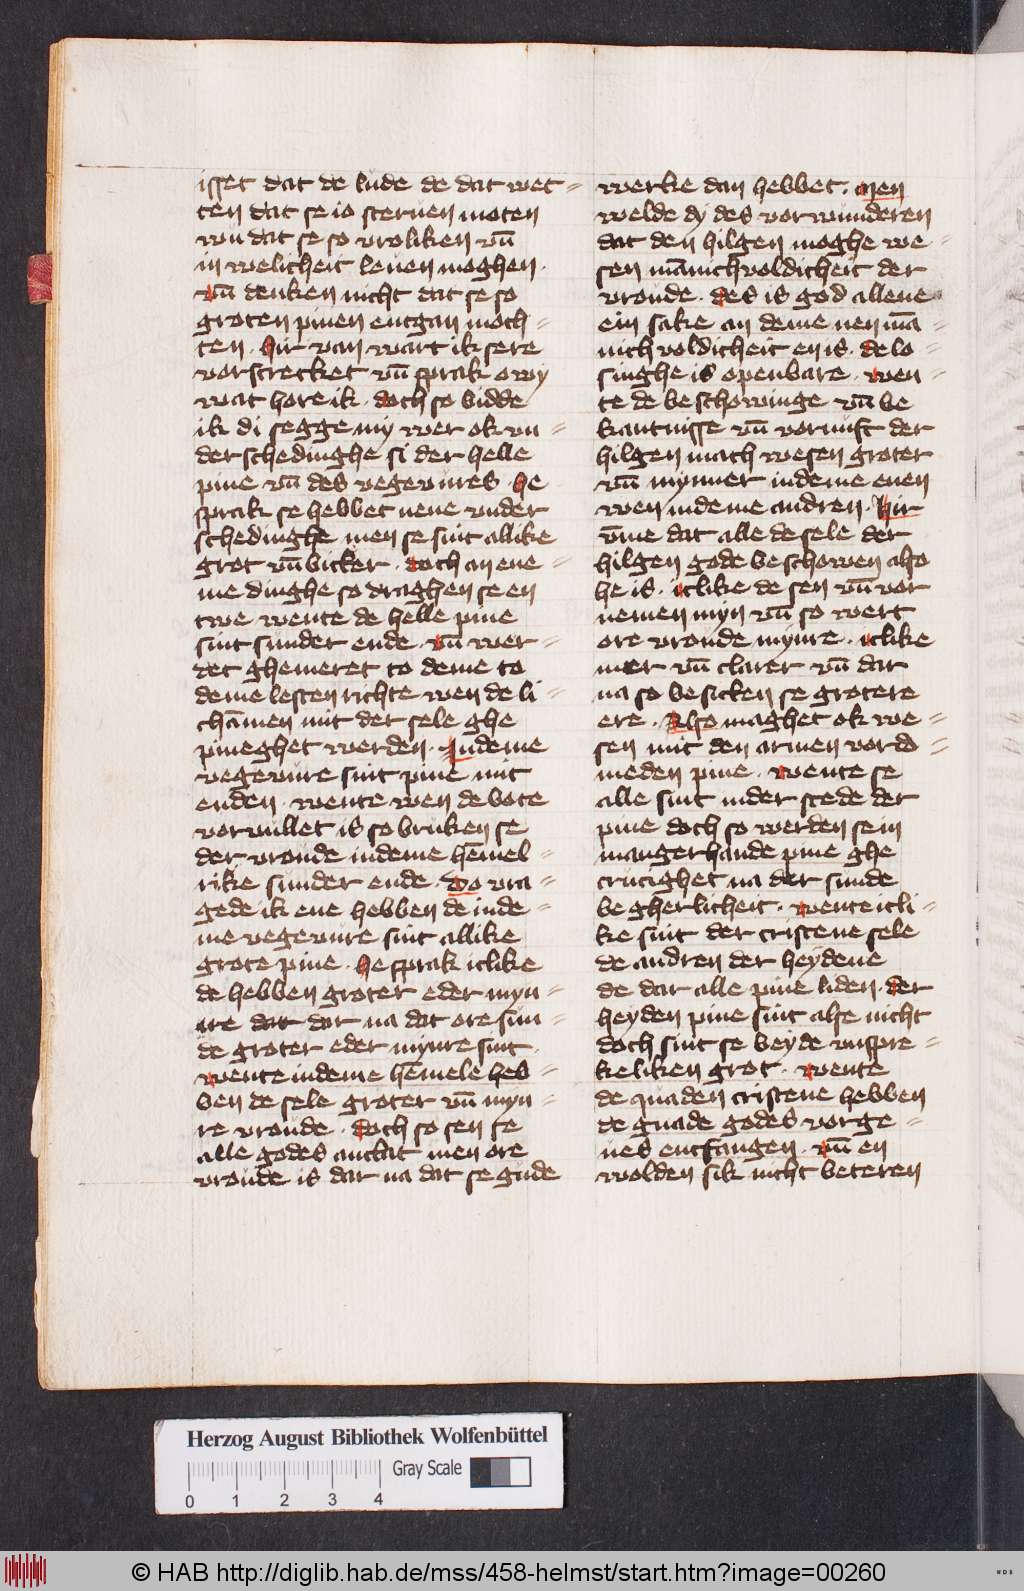 isset dat de lude de dat wet=
ten dat se io steruen moten
wu dat se so vroliken vn̄
in welicheit leuen moghen.
vn̄ denken nicht dat se so
groten pinen entgan moch=
ten. hir van wart ik sere
vorstrecket vn̄ sprak owy
wat hore ik. doch so bidde
ik di segge my wer ok vn=
derschedinghe si der helle
pine vn̄ des vegevures. he
sprak se hebbet nene vnder
schedinghe men se sint allike
grot vn̄ bicker. doch an ene=
me dinghe so draghen se en
twe wente de helle pine
sint sunder ende. vn̄ wer=
det ghemeret to deme to
deme lesten richte wen de li=
chāmen mit der sele ghe
pineghet werden. Indeme
vegevure sint pine mit
enden. wente wen de bote
vorvullet is so bruken se
der vroude indeme hēmel=
rike sunder ende. Do vra=
gede ik ene hebben de inde=
me vegevure sint allike
grote pine. he sprak iclike
de hebben groter eder myn=
nre dat dar na dat ore sun=
de groter eder mynre sint.
wente indeme hēmele heb=
ben de sele groter vn̄ myn=
re vroude. doch so sen se
alle godes antlat men ore
vroude is dar na dat se gude
werke dan hebbet. Men
welde dy des vorwunderen
dat den hilgen moghe we=
sen mānichvoldicheit der
vroude. des is god allene
ein sake an deme nen mā=
nich voldicheit en is. de lo=
singhe is openbare. wen=
te de beschowinge vn̄ be
kantnisse vn̄ vornuft der
hilgen mach wesen groter
vn̄ mynner indeme enen
wen indeme andren. Hir
vm̄e dat alle de sele der
hilgen gode beschowen also
he is. iclike de sen vn̄ vor
nemen myn vn̄ so wert
ore vroude mynre. iclike
mer vn̄ clarer vn̄ dar
na so besicken se grotere
ere. Also maghet ok we=
sen mit den armen vordo=
meden pine. wente se
alle sint inder stede der
pine doch so werden se in
mangerhande pine ghe
crucighet na der sunde
begherlicheit. wente icli=
ke sint der cristene sele
de andren der heydene
de dar alle pine liden. der
heyden pine sint alse nicht
doch sint se beyde vnspre=
keliken grot. wente
de quaden cristene hebben
de gnade godes vorge=
nes entfangen. vn̄ en
wolden sik nicht beteren
Herzog August Bibliothek Wolfenbüttel
Gray Scale
0 1 2 3 4
© HAB http://diglib.hab.de/mss/458-helmst/start.htm?image=00260